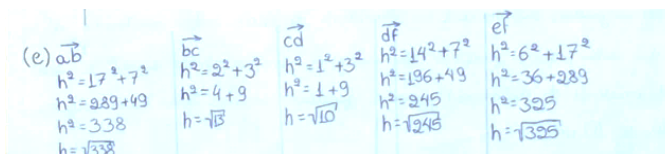 (e) ab
h²=17²+7²
h²=289+49
h²=338
h=√338
bc
h²=2²+3²
h²=4+9
h=√13
cd
h²=1²+3²
h²=1+9
h=√10
df
h²=14²+7²
h²=196+49
h²=245
h=√245
ef
h²=6²+17²
h²=36+289
h²=325
h=√325